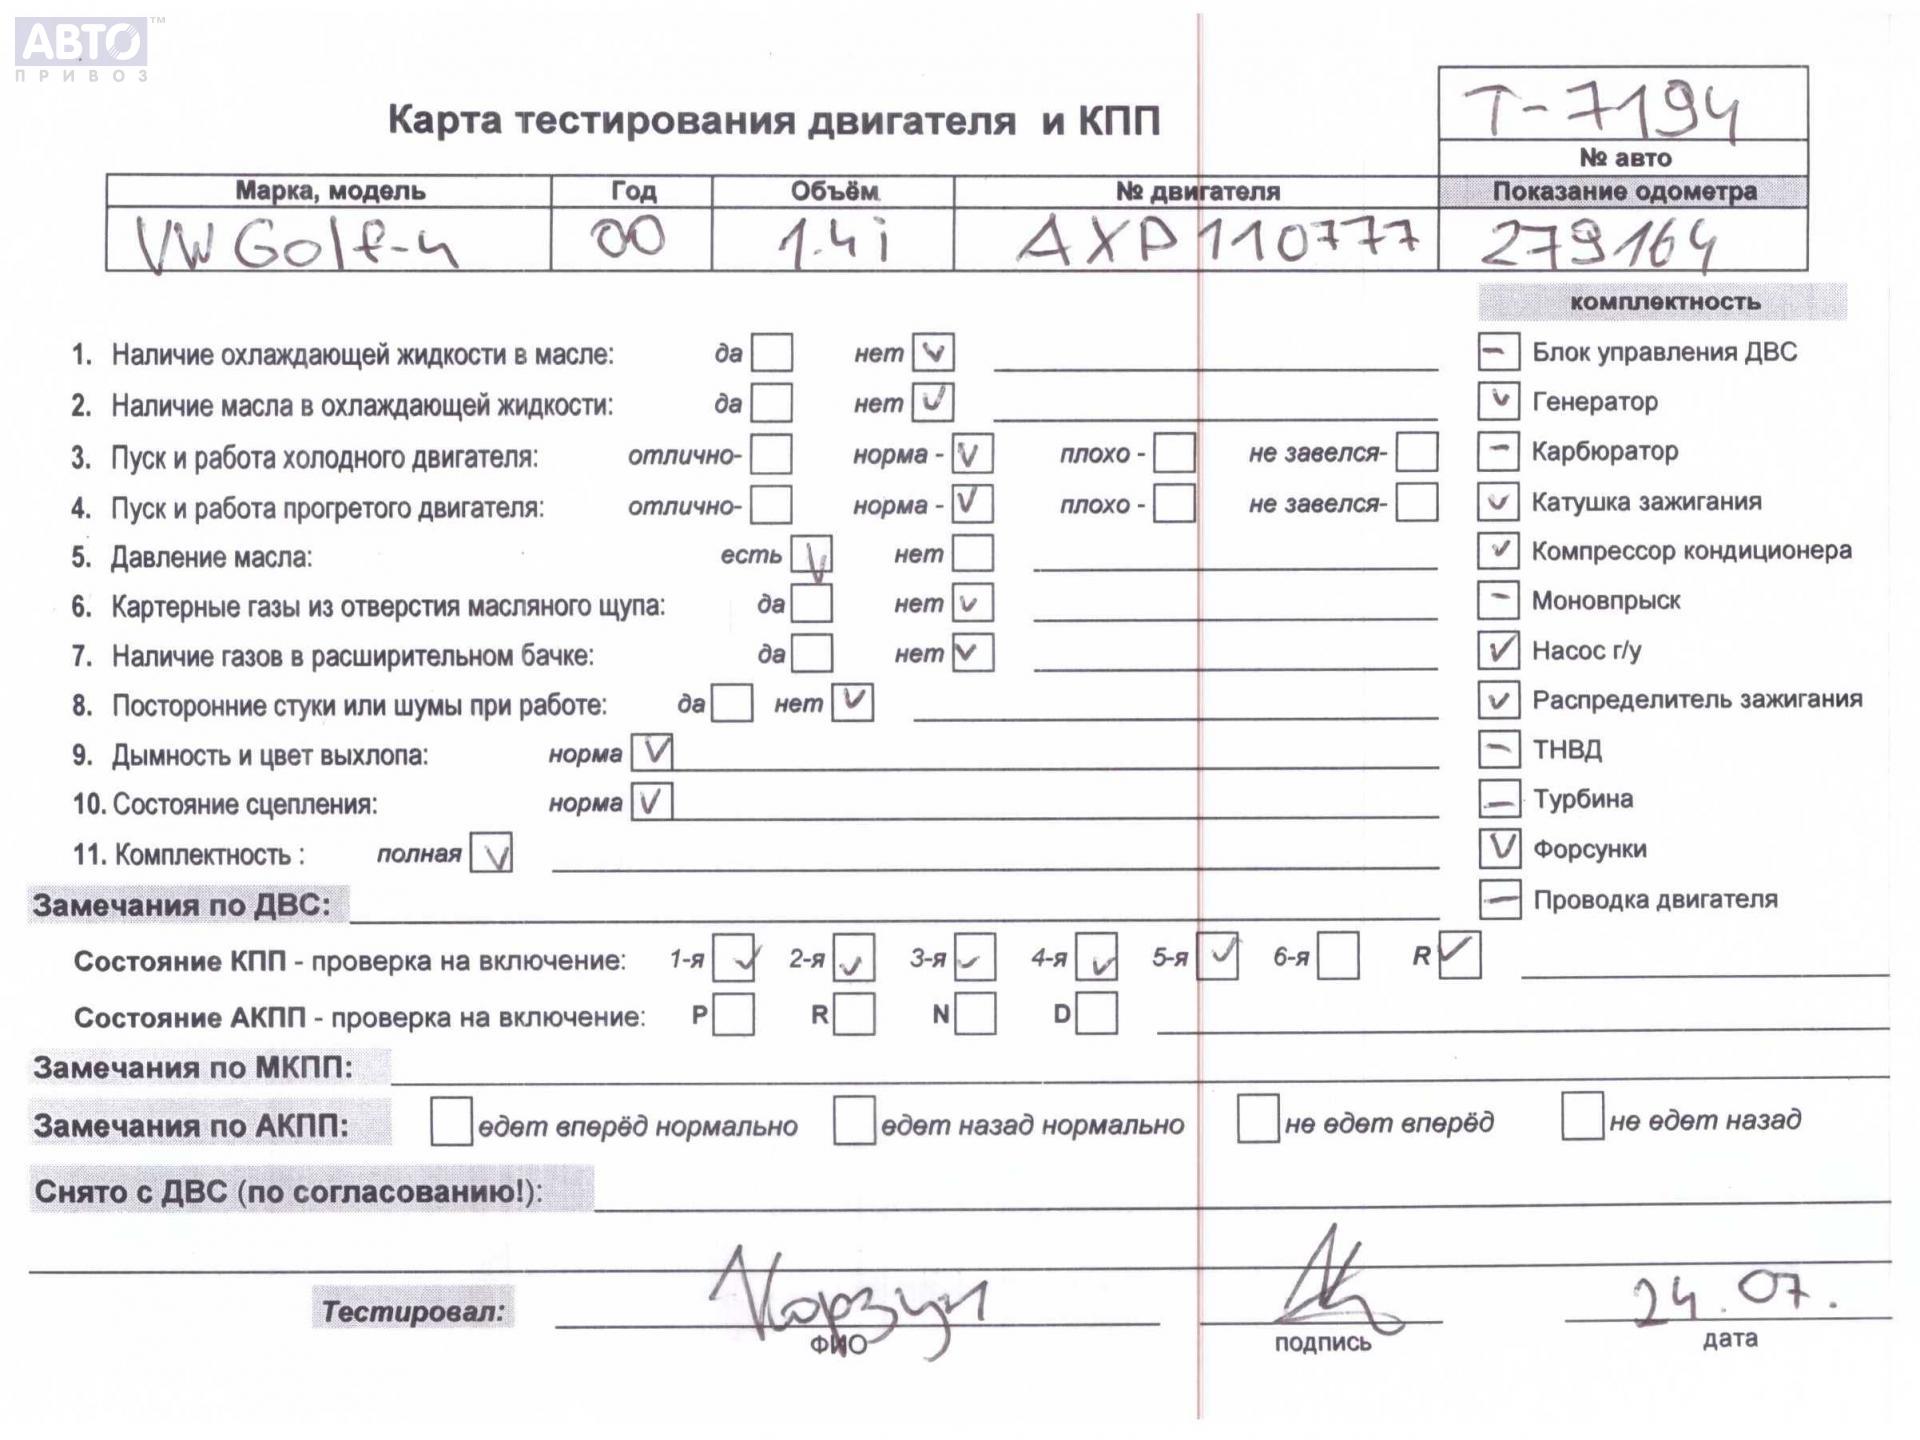 АВТО™
ПРИВОЗ
Т-7194
Карта тестирования двигателя и КПП
№ авто
Марка, модель Год Объём № двигателя Показание одометра
VW Golf-4 00 1.4i AXP110777 279164
комплектность
1. Наличие охлаждающей жидкости в масле: да нет Блок управления ДВС
2. Наличие масла в охлаждающей жидкости: да нет Генератор
3. Пуск и работа холодного двигателя: отлично- норма - плохо - не завелся- Карбюратор
4. Пуск и работа прогретого двигателя: отлично- норма - плохо - не завелся- Катушка зажигания
5. Давление масла: есть нет Компрессор кондиционера
6. Картерные газы из отверстия масляного щупа: да нет Моновпрыск
7. Наличие газов в расширительном бачке: да нет Насос г/у
8. Посторонние стуки или шумы при работе: да нет Распределитель зажигания
9. Дымность и цвет выхлопа: норма ТНВД
10. Состояние сцепления: норма Турбина
11. Комплектность : полная Форсунки
Замечания по ДВС: Проводка двигателя
Состояние КПП - проверка на включение: 1-я 2-я 3-я 4-я 5-я 6-я R
Состояние АКПП - проверка на включение: P R N D
Замечания по МКПП:
Замечания по АКПП: едет вперёд нормально едет назад нормально не едет вперёд не едет назад
Снято с ДВС (по согласованию!):
Тестировал: Корзун 24.07.
ФИО подпись дата